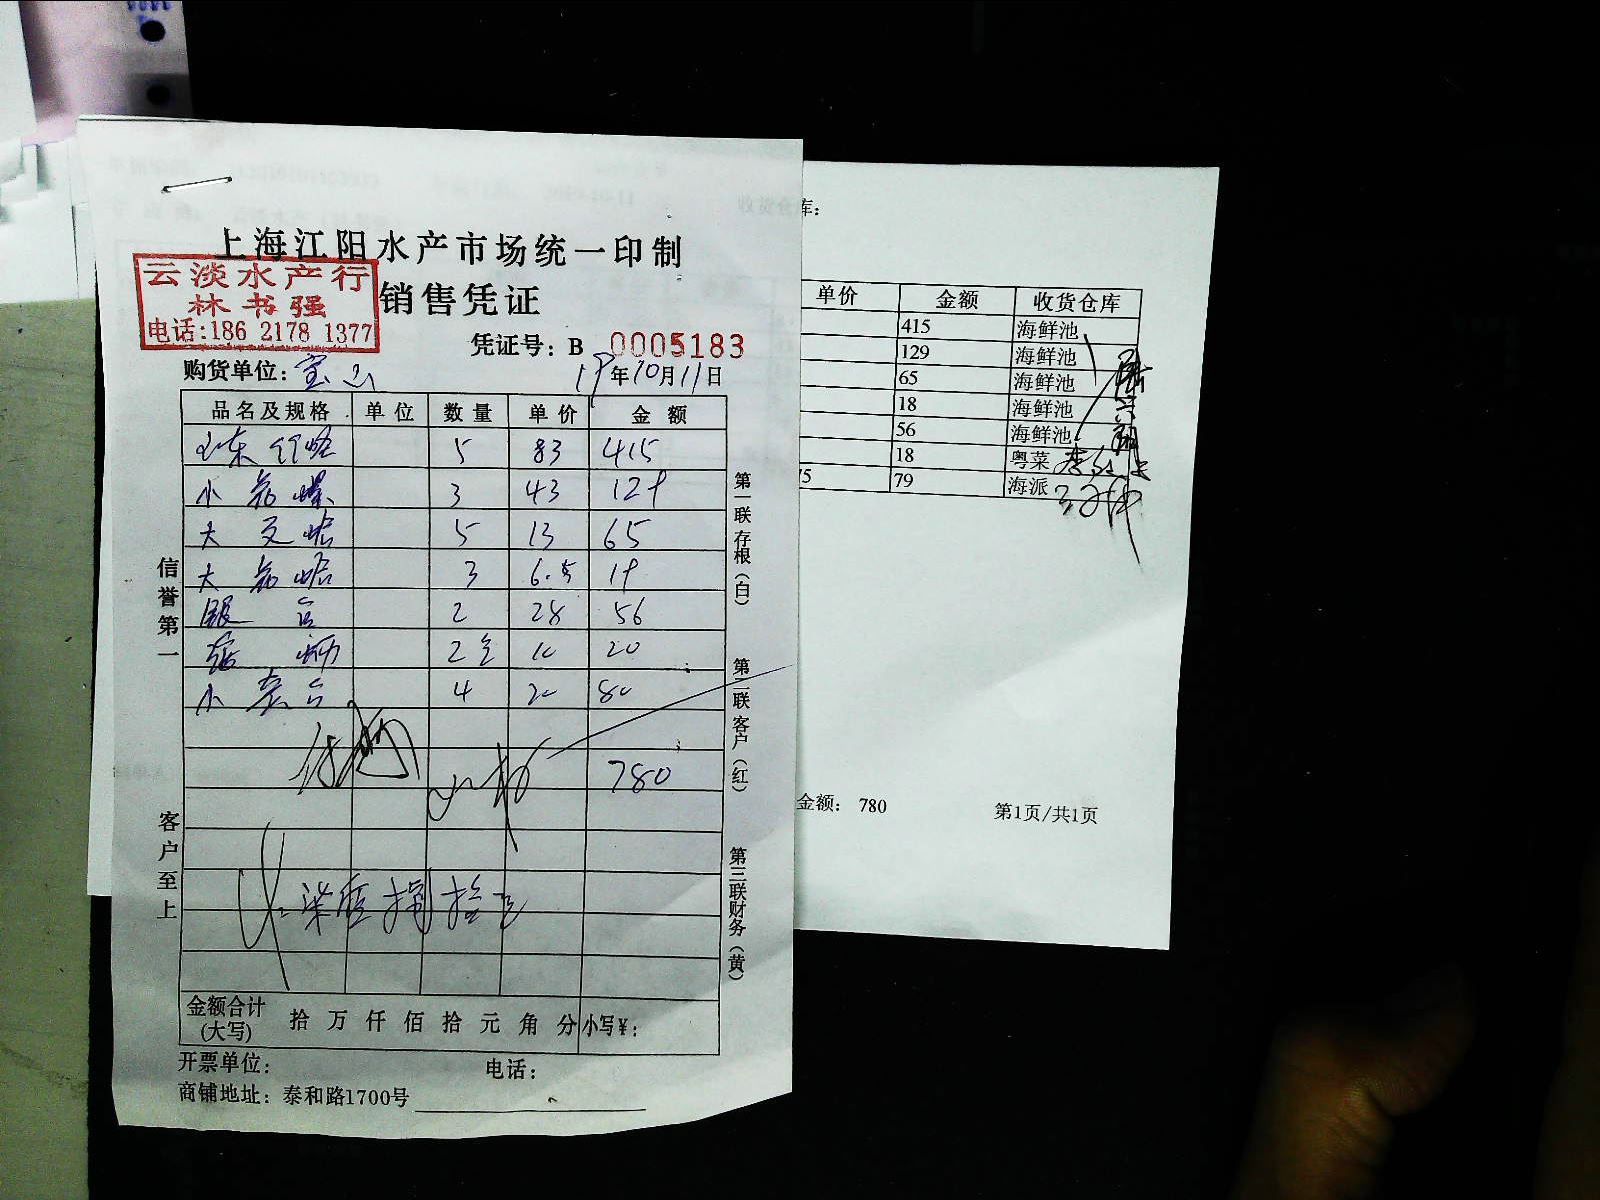 上海江阳水产市场统一印制
云淡水产行
林书强
电话:186 2178 1377
销售凭证
凭证号: B 0005183
购货单位: 宝山 19年10月11日
品名及规格 单位 数量 单价 金额
山东 5 83 415
小 3 43 129
大 5 13 65
大 3 6.5 19
2 28 56
2 10 20
小 4 20 80
780
信誉第一
客户至上
第一联存根(白)
第二联客户(红)
第三联财务(黄)
金额合计(大写) 拾 万 仟 佰 拾 元 角 分 小写¥:
开票单位: 电话:
商铺地址: 泰和路1700号
库:
单价 金额 收货仓库
415 海鲜池
129 海鲜池
65 海鲜池
18 海鲜池
56 海鲜池
18 粤菜
75 79 海派
金额: 780 第1页/共1页